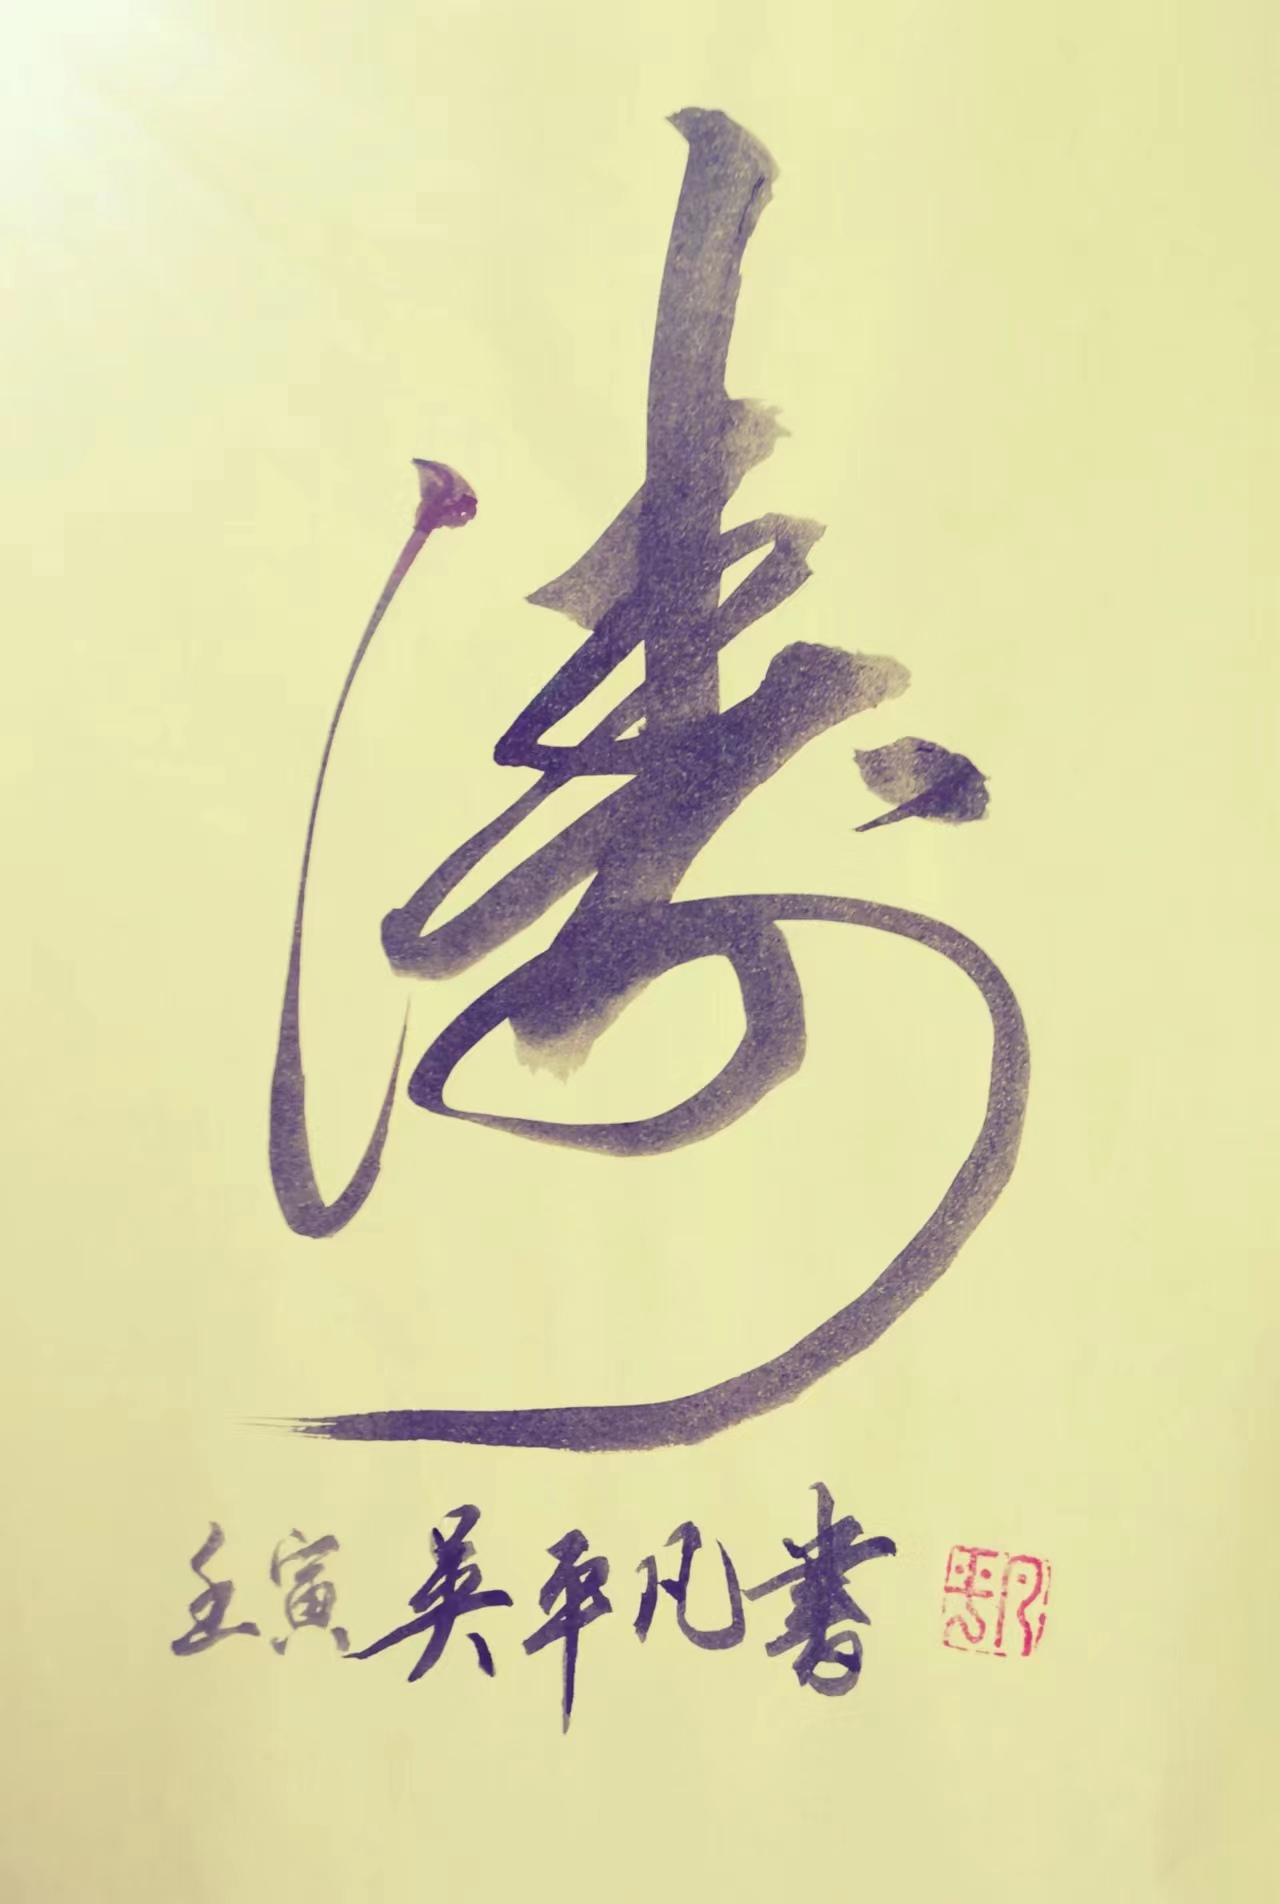 涛
壬寅吴平凡書